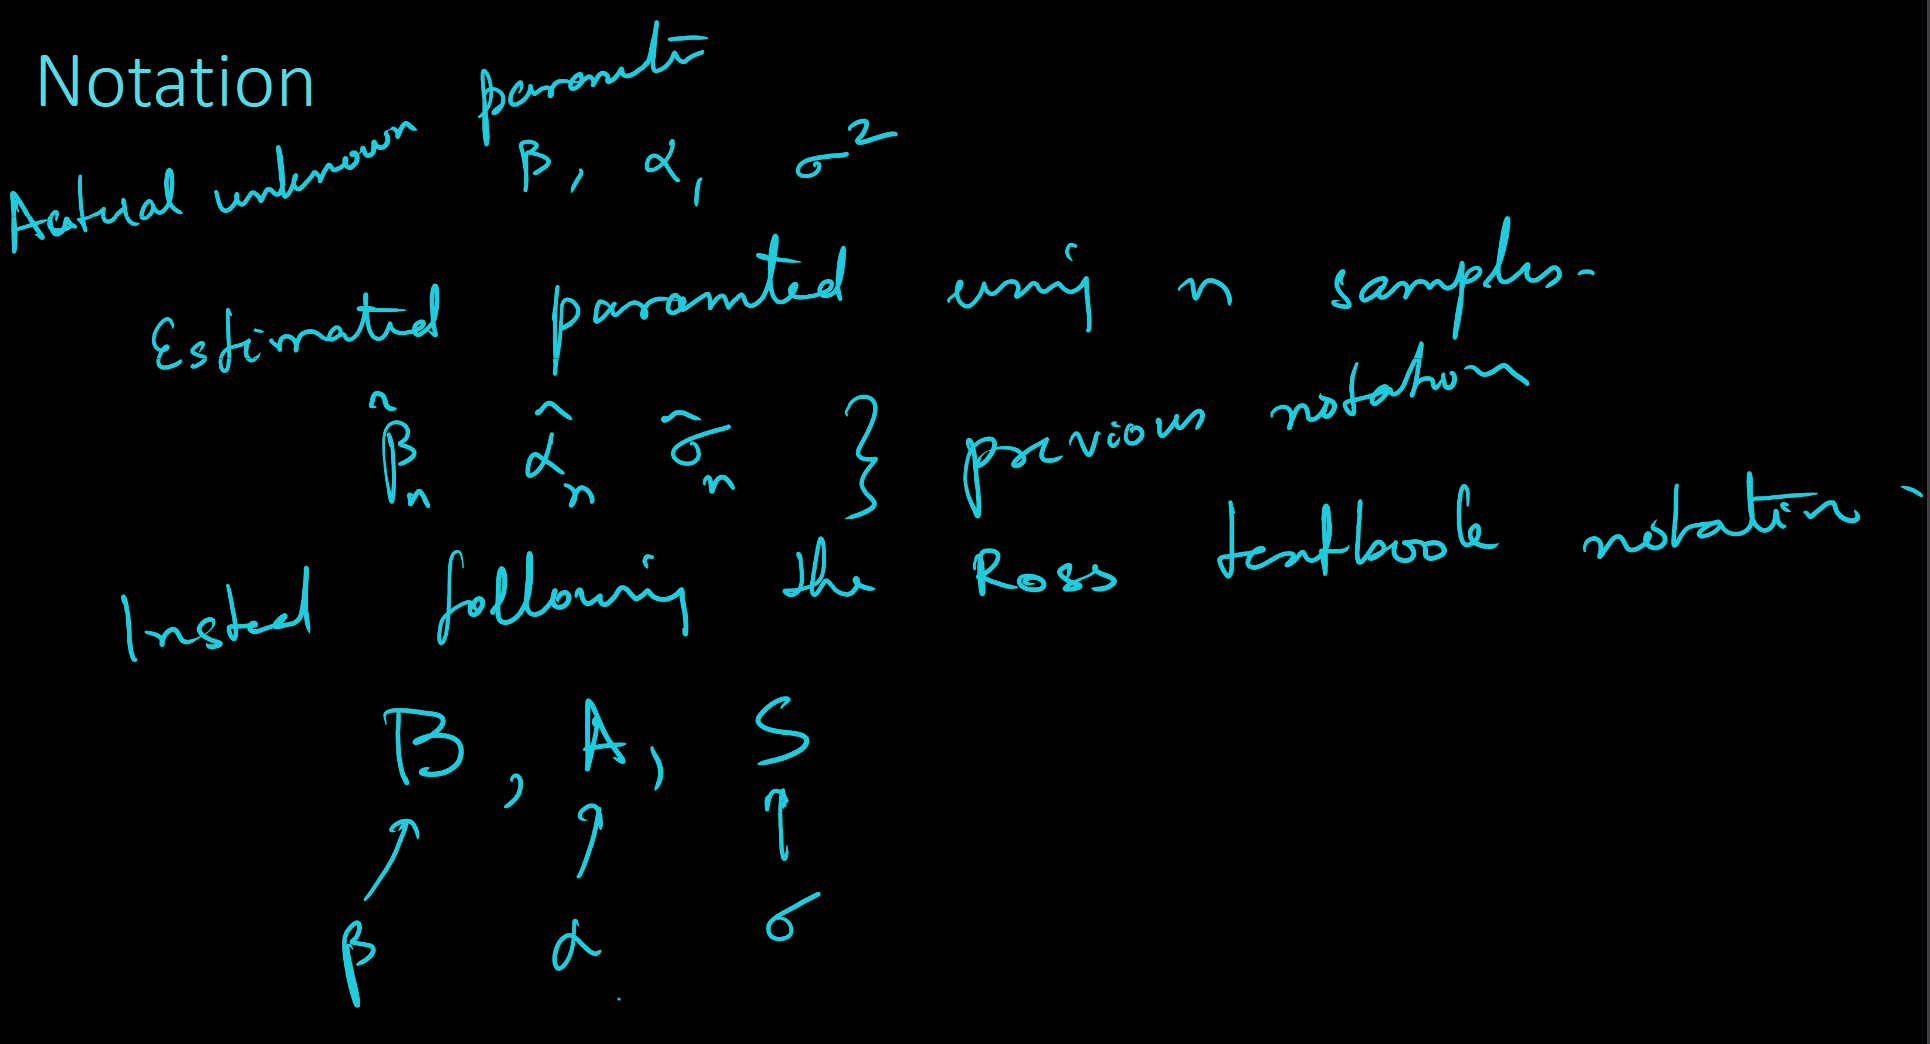 Notation
Actual unknown parametr
β, α, σ²
Estimated paramted using n samples.
β̂ₙ α̂ₙ σ̂ₙ } previous notation
Insted following the Ross textbook notation.
B, A, S
↑ ↑ ↑
β α σ